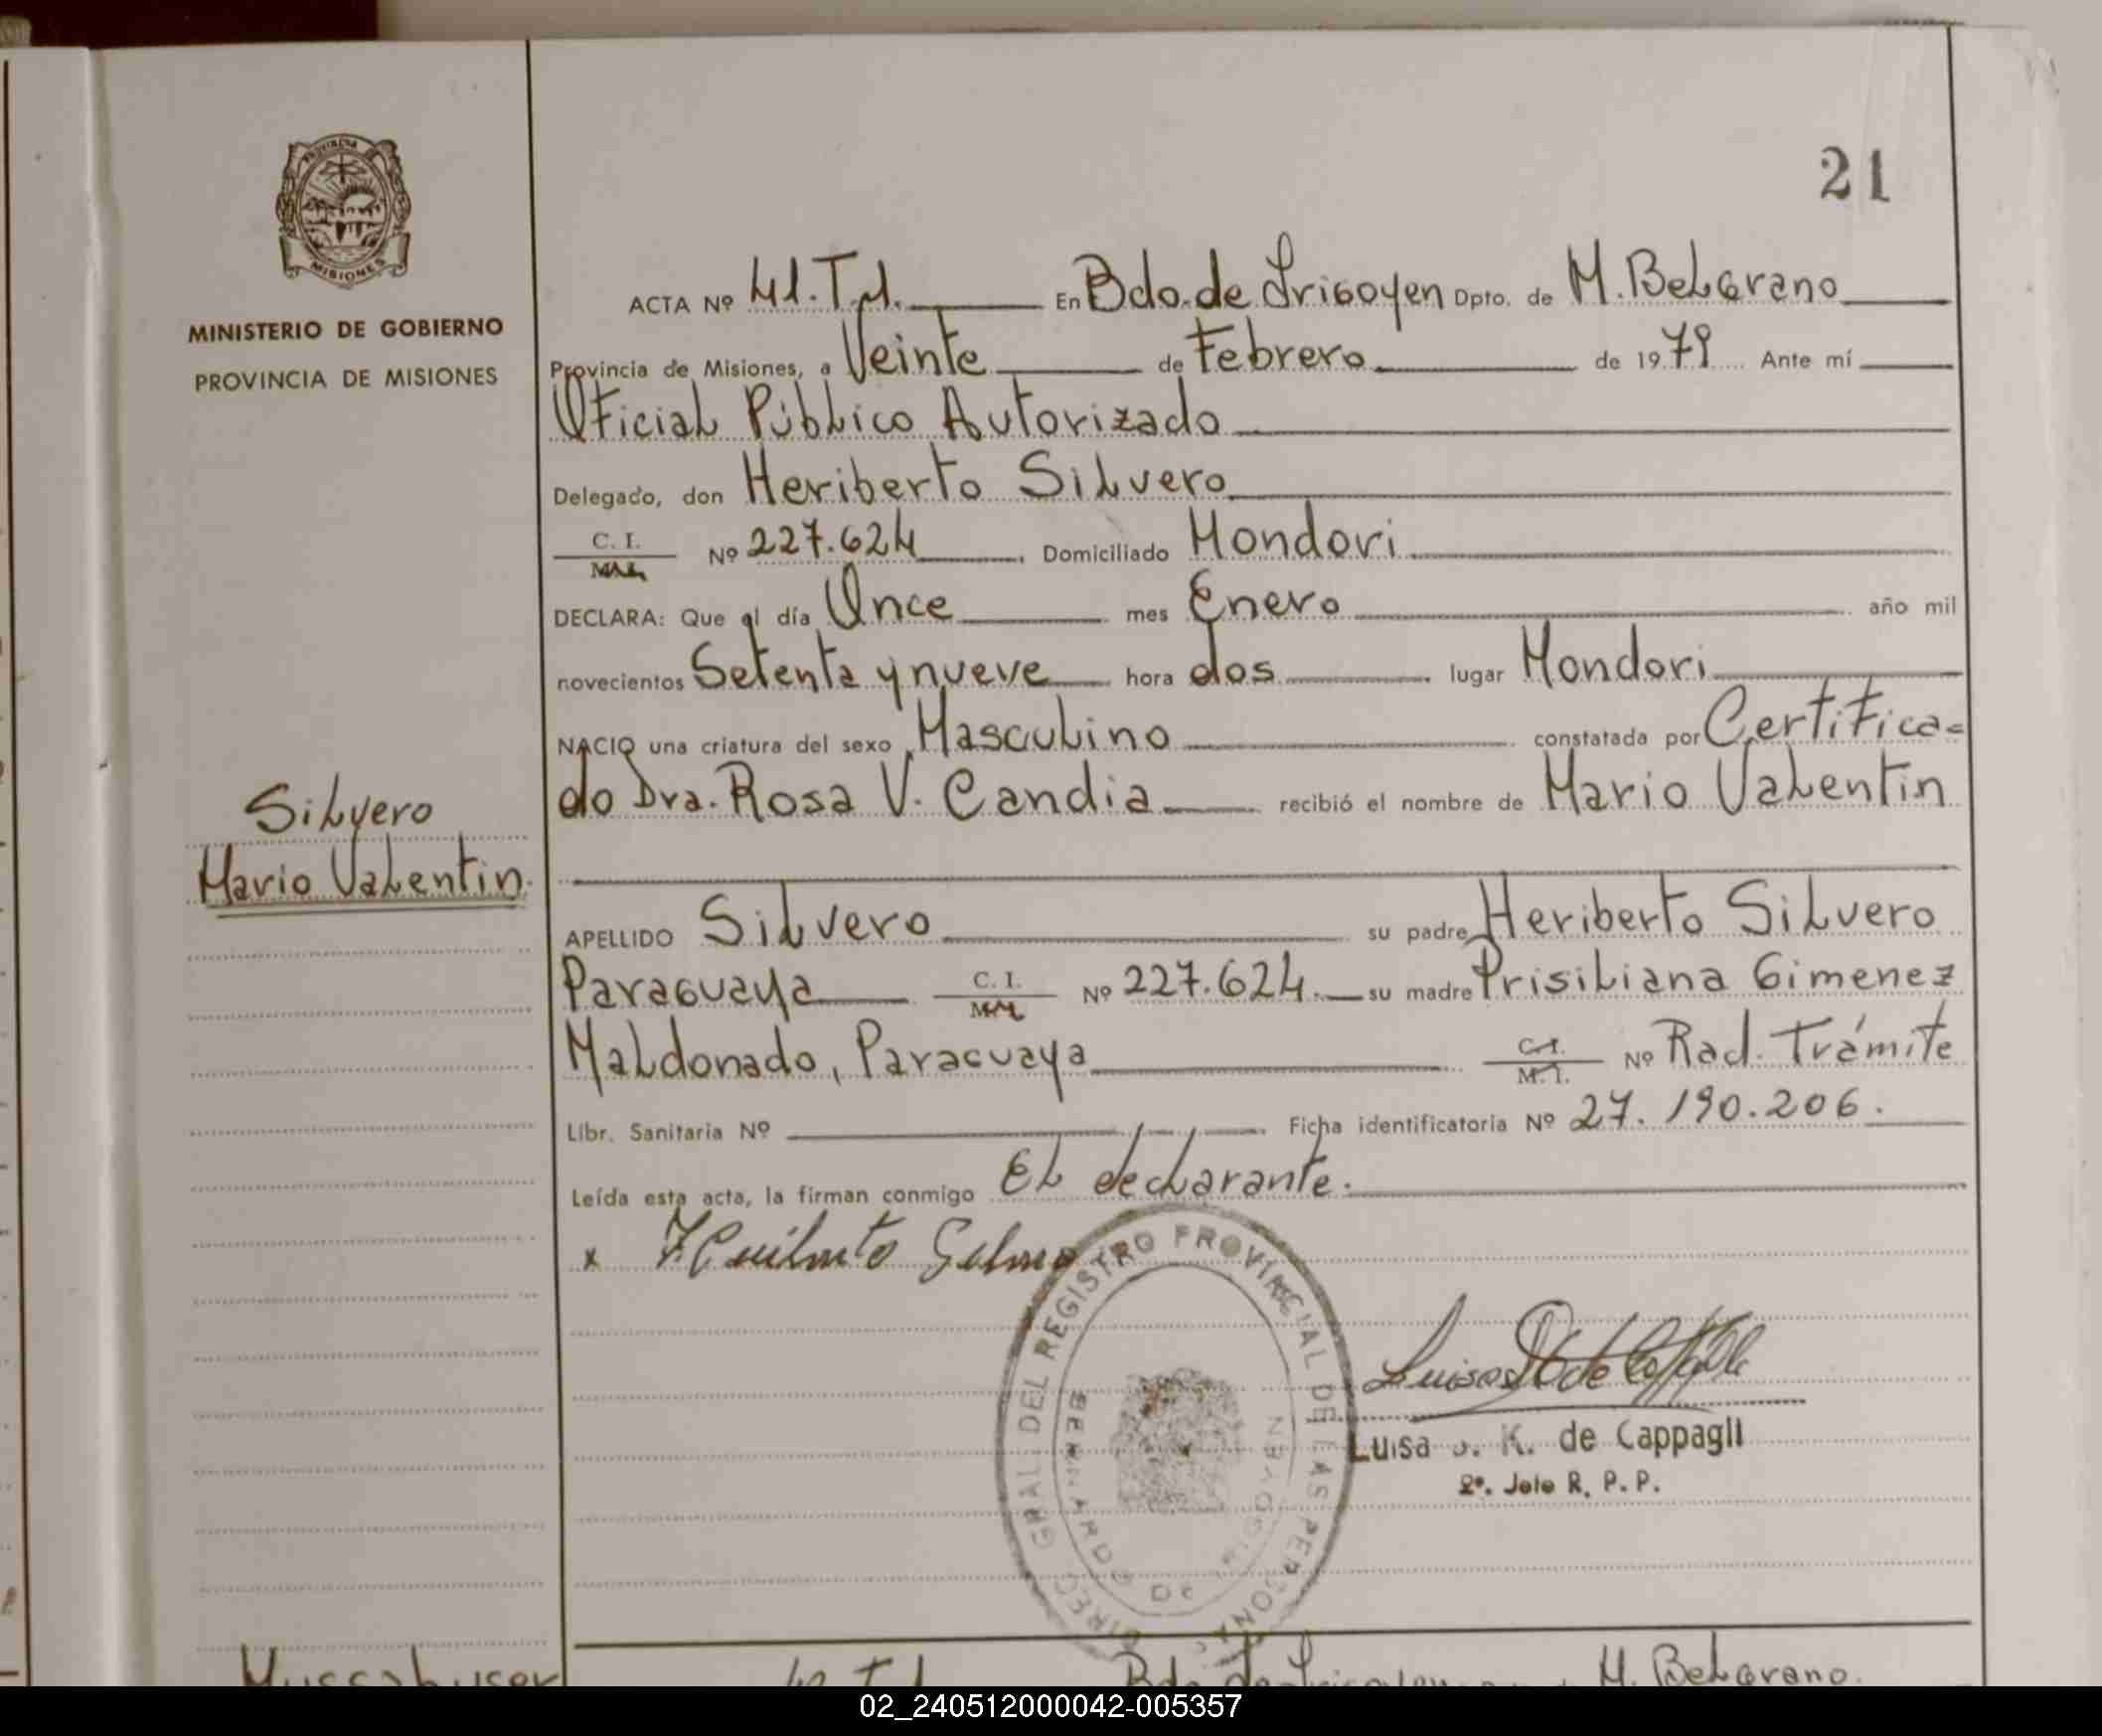 21
PROVINCIA
MISIONES
MINISTERIO DE GOBIERNO
PROVINCIA DE MISIONES
ACTA Nº 41. T.I. En Bdo. de Irigoyen Dpto. de M. Belgrano
Provincia de Misiones, a Veinte de Febrero de 1979 Ante mí
Oficial Público Autorizado
Delegado, don Heriberto Silvero
C. I. Nº 227.624 Domiciliado Mondori
DECLARA: Que el día Once mes Enero año mil
novecientos Setenta y nueve hora dos lugar Mondori
NACIO una criatura del sexo Masculino constatada por Certifica=
do Dra. Rosa V. Candia recibió el nombre de Mario Valentin
Silvero
Mario Valentin.
APELLIDO Silvero su padre Heriberto Silvero
Paraguaya C. I. Nº 227.624. su madre Prisiliana Gimenez
Maldonado, Paraguaya C.I. M.I. Nº Rad. Trámite
Libr. Sanitaria Nº Ficha identificatoria Nº 27.190.206.
Leída esta acta, la firman conmigo El declarante.
x
DIREC. GRAL DEL REGISTRO PROVINCIAL DE LAS PERSONAS
BERNARDO DE IRIGOYEN
Luisa J. K. de Cappagli
2º. Jefe R. P. P.
Bdo. de Irigoyen M. Belgrano.
02_240512000042-005357